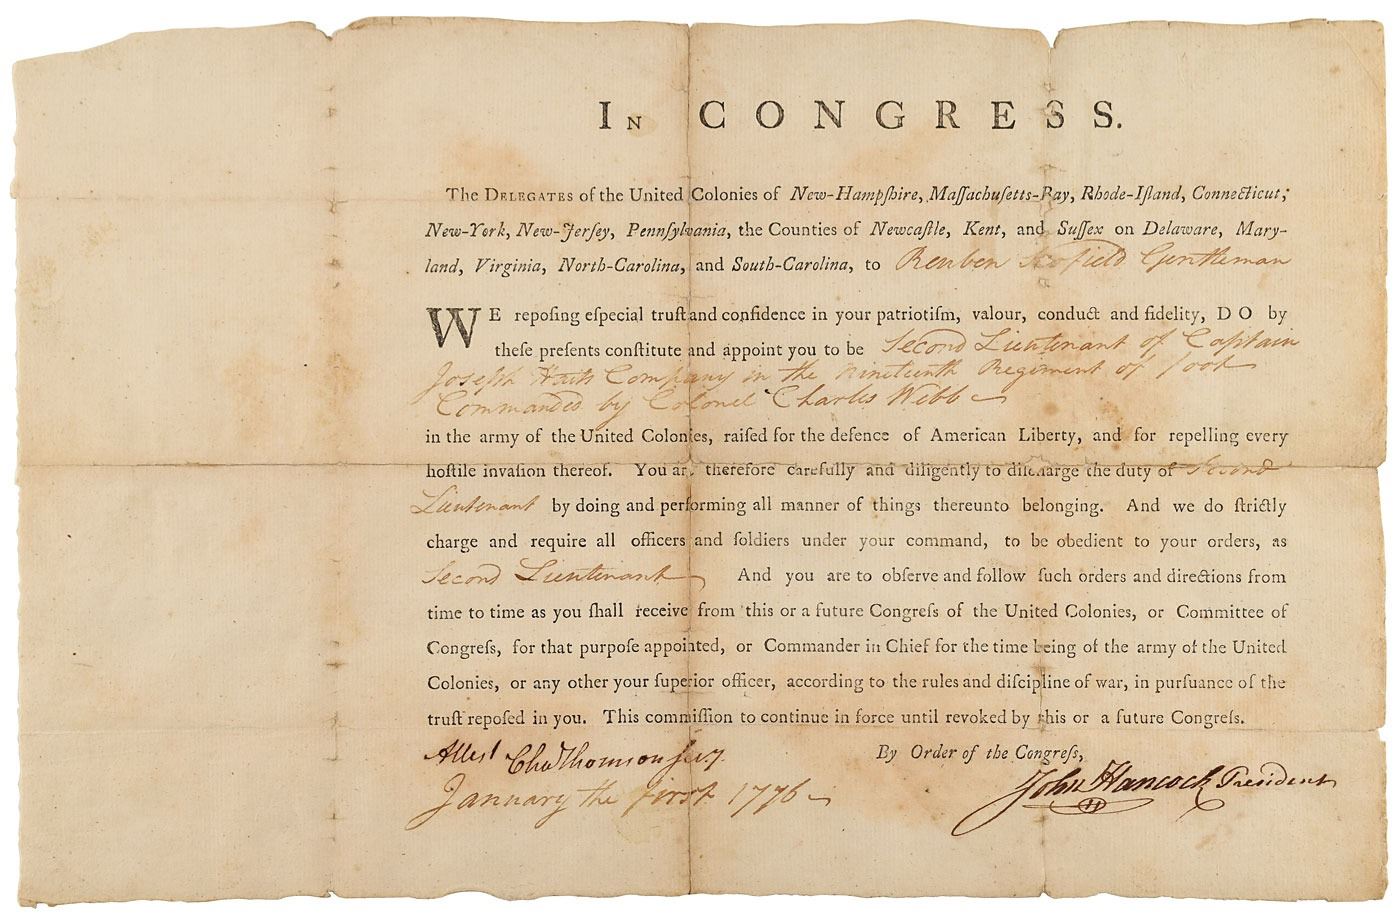 In CONGRESS.
The DELEGATES of the United Colonies of New-Hampſhire, Maſſachuſetts-Bay, Rhode-Iſland, Connecticut,
New-York, New-Jerſey, Pennſylvania, the Counties of Newcaſtle, Kent, and Suſſex on Delaware, Mary-
land, Virginia, North-Carolina, and South-Carolina, to Reuben Scofield Gentleman
WE repoſing eſpecial truſt and confidence in your patriotiſm, valour, conduct and fidelity, DO by
theſe preſents conſtitute and appoint you to be Second Lieutenant of Captain
Joseph Company in the Nineteenth Regiment of foot
Commanded by Colonel Charles Webb
in the army of the United Colonies, raiſed for the defence of American Liberty, and for repelling every
hoſtile invaſion thereof. You are therefore carefully and diligently to diſcharge the duty of Second
Lieutenant by doing and performing all manner of things thereunto belonging. And we do ſtrictly
charge and require all officers and ſoldiers under your command, to be obedient to your orders, as
Second Lieutenant And you are to obſerve and follow ſuch orders and directions from
time to time as you ſhall receive from this or a future Congreſs of the United Colonies, or Committee of
Congreſs, for that purpoſe appointed, or Commander in Chief for the time being of the army of the United
Colonies, or any other your ſuperior officer, according to the rules and diſcipline of war, in purſuance of the
truſt repoſed in you. This commiſſion to continue in force until revoked by this or a future Congreſs.
By Order of the Congreſs,
Attest Cha Thomson secy.
John Hancock President
January the first 1776